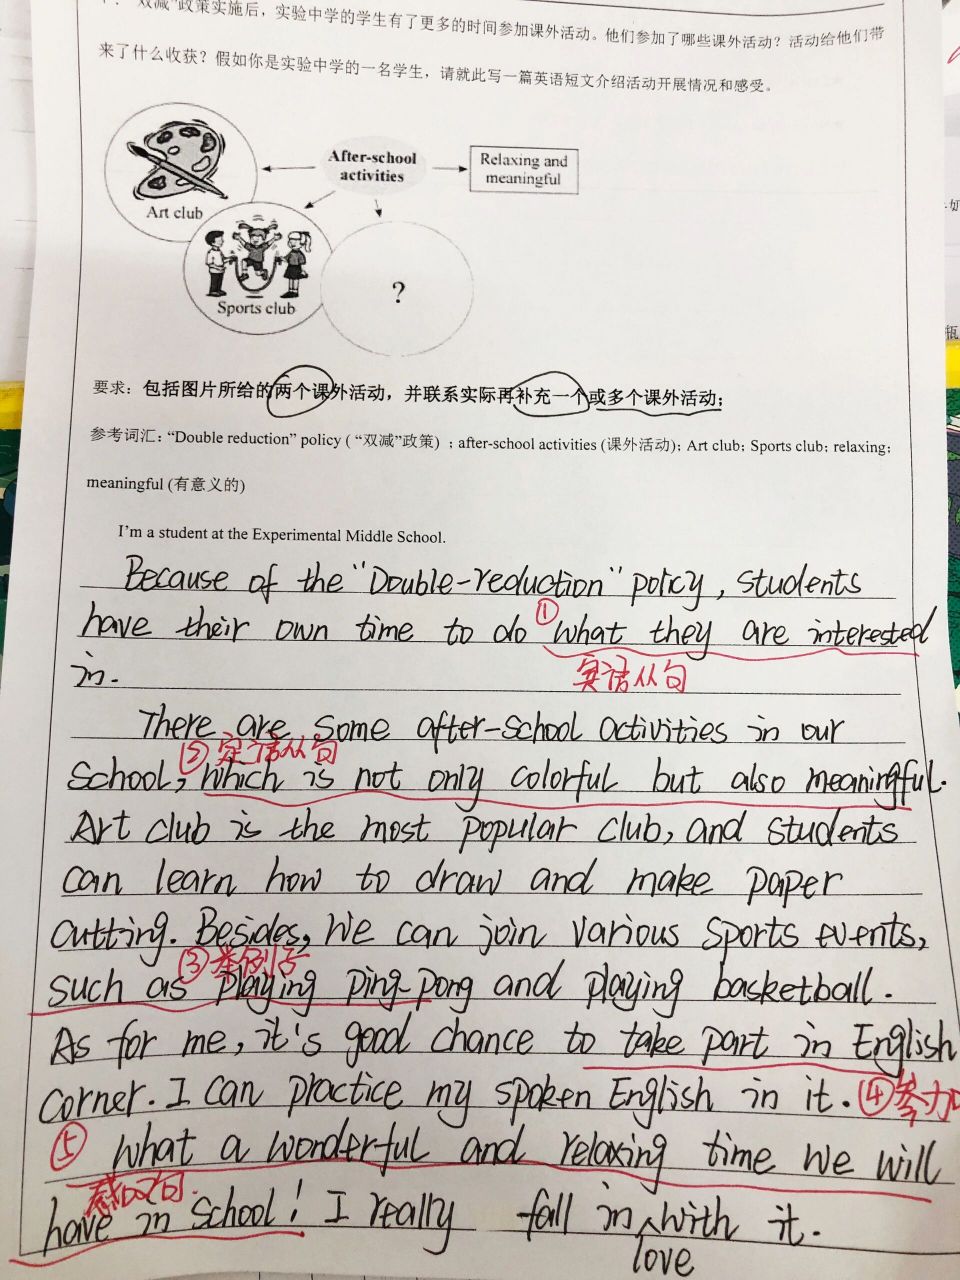 双减”政策实施后，实验中学的学生有了更多的时间参加课外活动。他们参加了哪些课外活动？活动给他们带
来了什么收获？假如你是实验中学的一名学生，请就此写一篇英语短文介绍活动开展情况和感受。
After-school
activities
Relaxing and
meaningful
Art club
Sports club
?
要求：包括图片所给的两个课外活动，并联系实际再补充一个或多个课外活动；
参考词汇：“Double reduction” policy ( “双减”政策) ；after-school activities (课外活动)；Art club；Sports club；relaxing；
meaningful (有意义的)
I'm a student at the Experimental Middle School.
Because of the "Double-reduction" policy, students
have their own time to do ①what they are interested
in.
宾语从句
There are some after-school activities in our
②定语从句
school, which is not only colorful but also meaningful.
Art club is the most popular club, and students
can learn how to draw and make paper
cutting. Besides, we can join various sports events,
③举例子
such as playing ping-pong and playing basketball.
As for me, it's good chance to take part in English
corner. I can practice my spoken English in it. ④参加
⑤ What a wonderful and relaxing time we will
感叹句.
have in school! I really fall in with it.
love